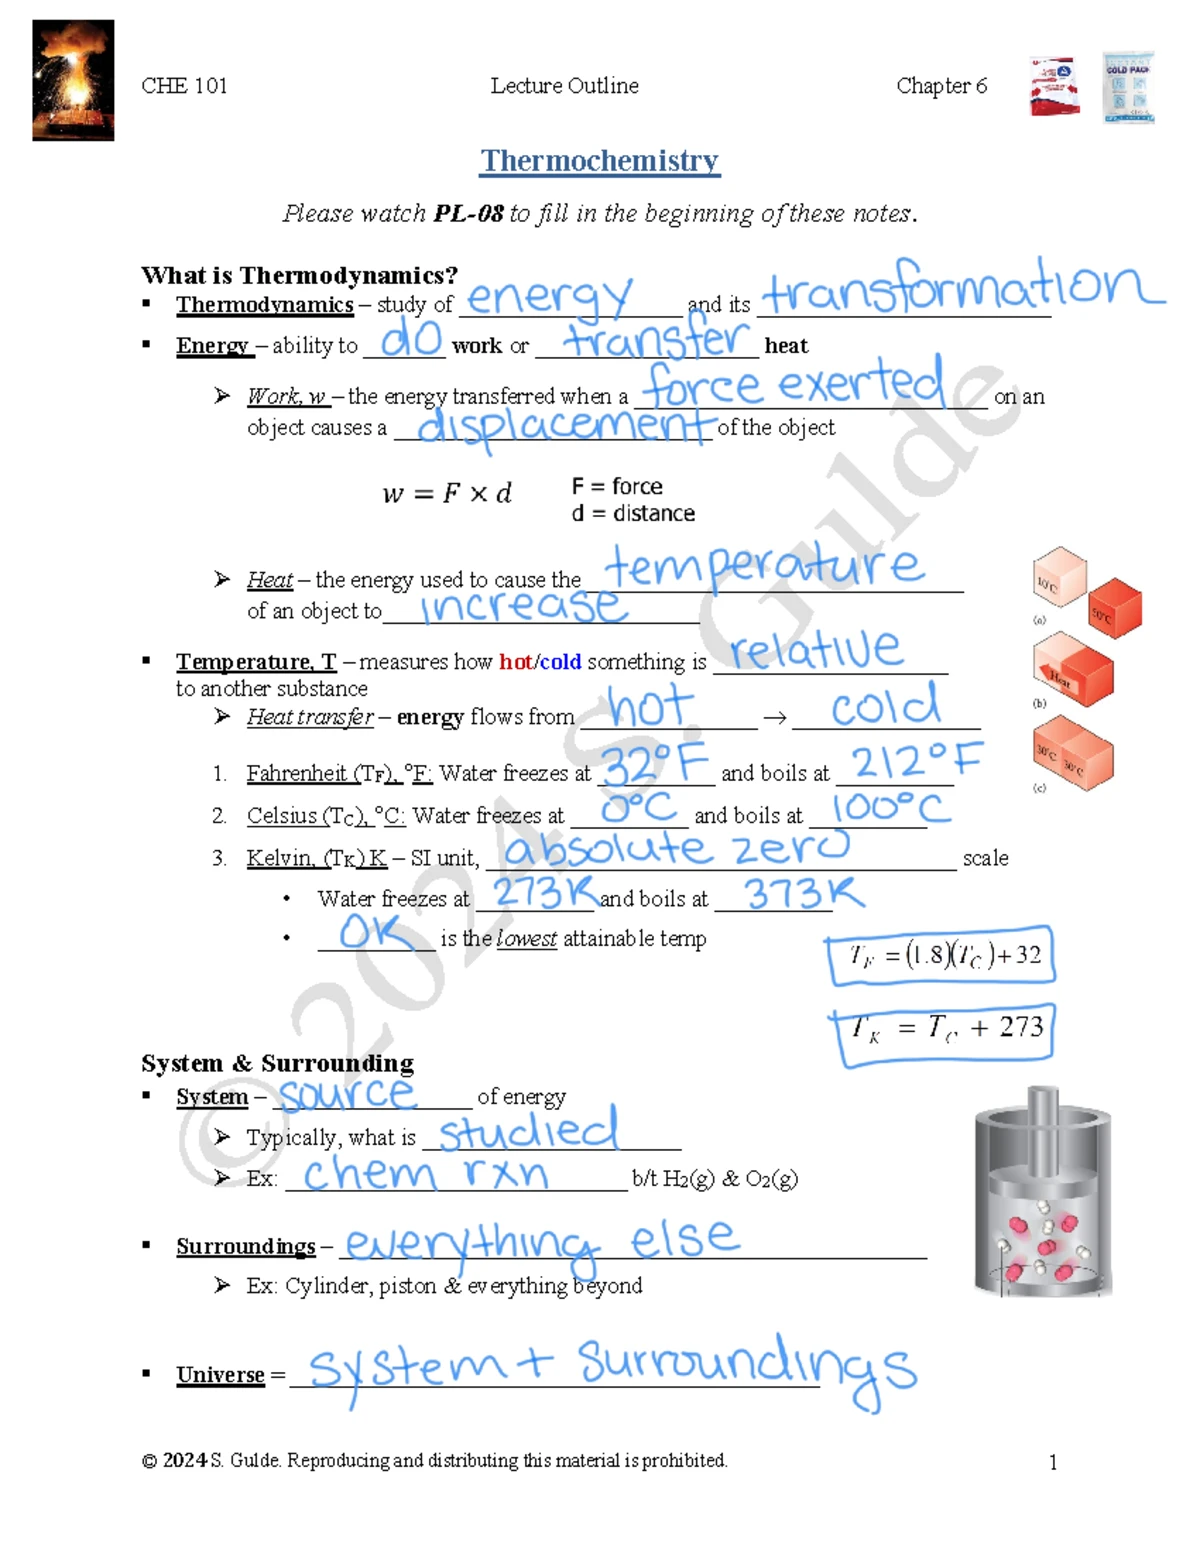 CHE 101 Lecture Outline Chapter 6
COLD PACK
Thermochemistry
Please watch PL-08 to fill in the beginning of these notes.
What is Thermodynamics?
▪ Thermodynamics – study of energy and its transformation
▪ Energy – ability to do work or transfer heat
➢ Work, w – the energy transferred when a force exerted on an
object causes a displacement of the object
w = F × d F = force
d = distance
➢ Heat – the energy used to cause the temperature
of an object to increase
10°C
50°C
(a)
▪ Temperature, T – measures how hot/cold something is relative
to another substance
Heat
(b)
➢ Heat transfer – energy flows from hot → cold
30°C 30°C
(c)
1. Fahrenheit (TF), °F: Water freezes at 32°F and boils at 212°F
2. Celsius (TC), °C: Water freezes at 0°C and boils at 100°C
3. Kelvin, (TK) K – SI unit, absolute zero scale
• Water freezes at 273K and boils at 373K
• 0K is the lowest attainable temp
TF = (1.8)(TC) + 32
TK = TC + 273
System & Surrounding
▪ System – source of energy
➢ Typically, what is studied
➢ Ex: chem rxn b/t H2(g) & O2(g)
▪ Surroundings – everything else
➢ Ex: Cylinder, piston & everything beyond
▪ Universe = system + surroundings
© 2024 S. Gulde. Reproducing and distributing this material is prohibited. 1
© 2024 S. Gulde